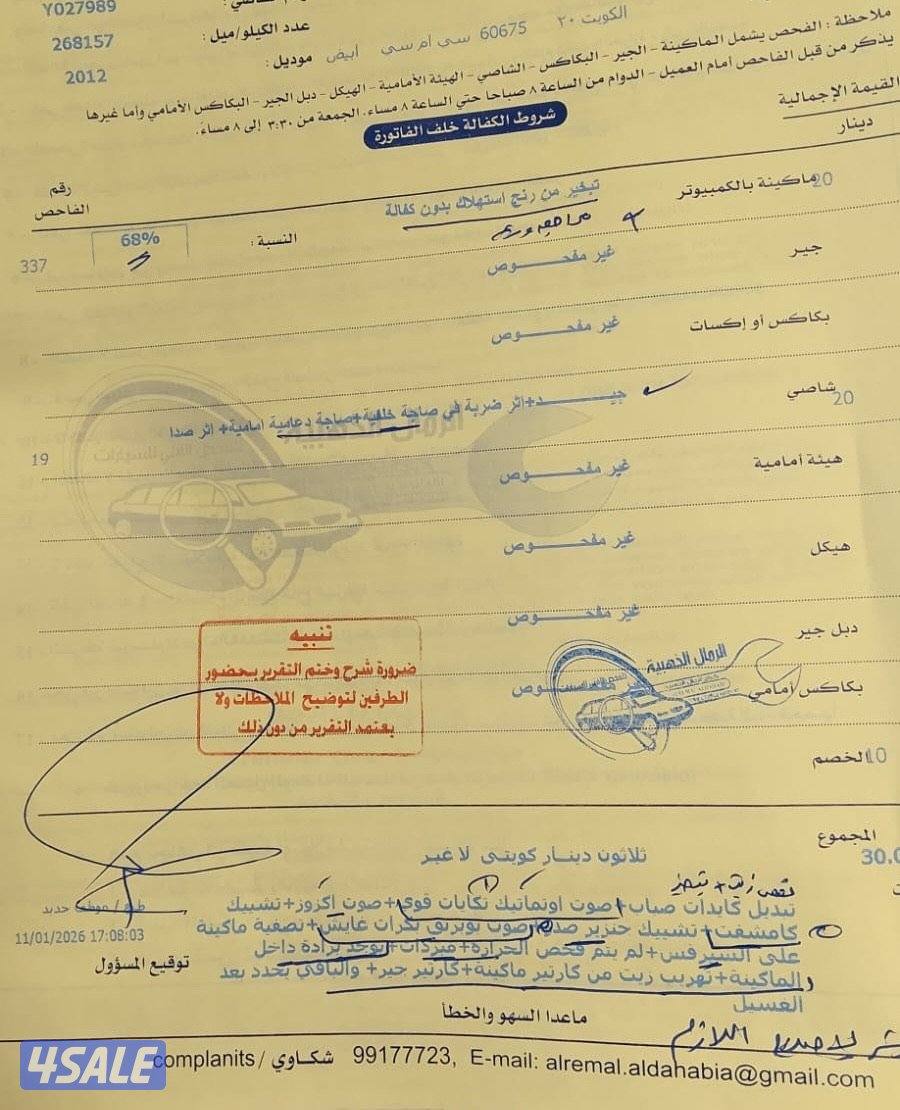 Y027989
عدد الكيلو/ميل :
268157
الكويت ٢٠ 60675 سي ام سي ابيض موديل :
2012
ملاحظة : الفحص يشمل الماكينة - الجير - البكاكس - الشاصي - الهيئة الأمامية - الهيكل - دبل الجير - البكاكس الأمامي وأما غيرها
يذكر من قبل الفاحص أمام العميل - الدوام من الساعة ٨ صباحا حتى الساعة ٨ مساء. الجمعة من ٣:٣٠ إلى ٨ مساءً.
شروط الكفالة خلف الفاتورة
القيمة الإجمالية
دينار
رقم
الفاحص
20 ماكينة بالكمبيوتر
تبخير من رنج استهلاك بدون كفالة
النسبة : 68%
337
جير
غير مفحــــوص
بكاكس أو إكسات
غير مفحــــوص
شاصي
20
جيــــــد+اثر ضربة في صاجة خلفية+صاجة دعامية امامية+ اثر صدا
19
هيئة أمامية
غير مفحــــوص
هيكل
غير مفحــــوص
دبل جير
غير مفحــــوص
بكاكس أمامي
غير مفحــــوص
الرمال الذهبية
تنبيه
ضرورة شرح وختم التقرير بحضور
الطرفين لتوضيح الملاحظات ولا
يعتمد التقرير من دون ذلك
10 الخصم
المجموع
30.0
ثلاثون دينار كويتي لا غير
نقص زيت + تبخير
تبديل كايدات صباب+صوت اوتماتيك تكايات قوي+صوت اكزوز+تشبيك
كامشفت+تشبيك جنزير صدر+صوت توبرنق بكرات عايش+تصفية ماكينة
على السيرفس+لم يتم فحص الحرارة+مبردات+يوجد برادة داخل
الماكينة+تهريب زيت من كارتير ماكينة+كارتير جير+ والباقي يحدد بعد
الغسيل
11/01/2026 17:08:03
توقيع المسؤول
ماعدا السهو والخطأ
complanits / شكاوي 99177723, E-mail: alremal.aldahabia@gmail.com
4SALE